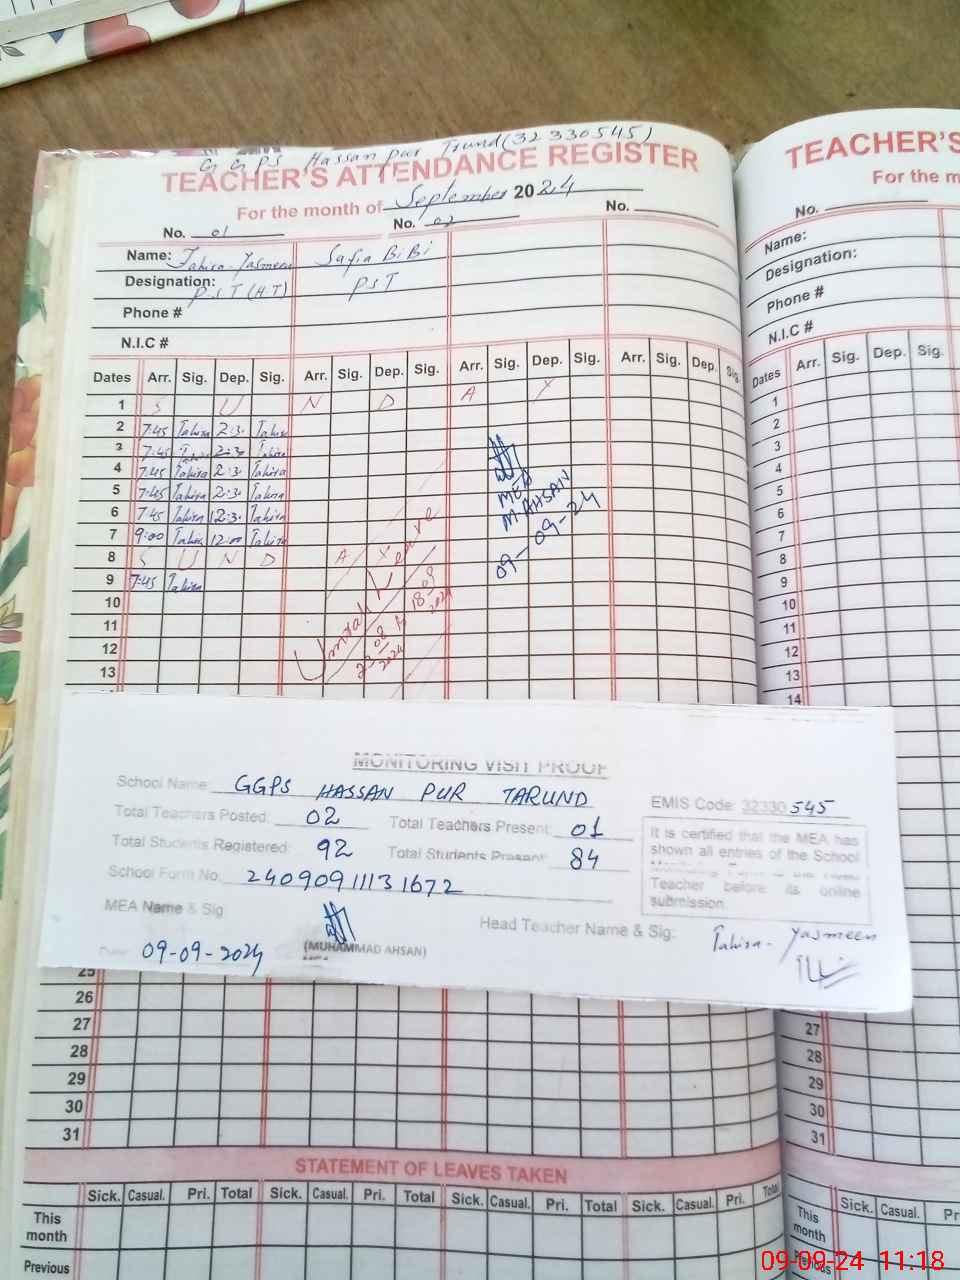 GGPS Hassan Pur Trund (32330545)
TEACHER'S ATTENDANCE REGISTER
For the month of September 2024
No. 01 No. 02 No.
Name: Tahira-Yasmeen Safia BiBi
Designation: P.S.T (H.T) PST
Phone #
N.I.C #
Dates Arr. Sig. Dep. Sig. Arr. Sig. Dep. Sig. Arr. Sig. Dep. Sig. Arr. Sig. Dep. Sig.
1 S U N D A Y
2 7:45 Tahira 2:30 Tahira
3 7:45 Tahira 2:30 Tahira
4 7:45 Tahira 2:30 Tahira
5 7:45 Tahira 2:30 Tahira
6 7:45 Tahira 12:30 Tahira
7 9:00 Tahira 12:00 Tahira
8 S U N D A Y
9 7:45 Tahira
10
11
12
13
14
Umrah Leave
23/08/2024 to 18/09/2024
MEA
M. AHSAN
09-09-24
MONITORING VISIT PROOF
School Name: GGPS HASSAN PUR TARUND
EMIS Code: 32330545
Total Teachers Posted: 02 Total Teachers Present: 01
Total Students Registered: 92 Total Students Present: 84
School Form No: 24090911131672
It is certified that the MEA has
shown all entries of the School
Teacher before its online
submission.
MEA Name & Sig
(MUHAMMAD AHSAN)
MEA
Head Teacher Name & Sig: Tahira-Yasmeen
Date: 09-09-2024
25
26
27
28
29
30
31
STATEMENT OF LEAVES TAKEN
Sick. Casual. Pri. Total Sick. Casual. Pri. Total Sick. Casual. Pri. Total Sick. Casual. Pri. Total
This month
Previous
TEACHER'S
For the m
No.
Name:
Designation:
Phone #
N.I.C #
Dates Arr. Sig. Dep. Sig.
1
2
3
4
5
6
7
8
9
10
11
12
13
14
27
28
29
30
31
Sick. Casual. Pr
This month
Previous
09-09-24 11:18